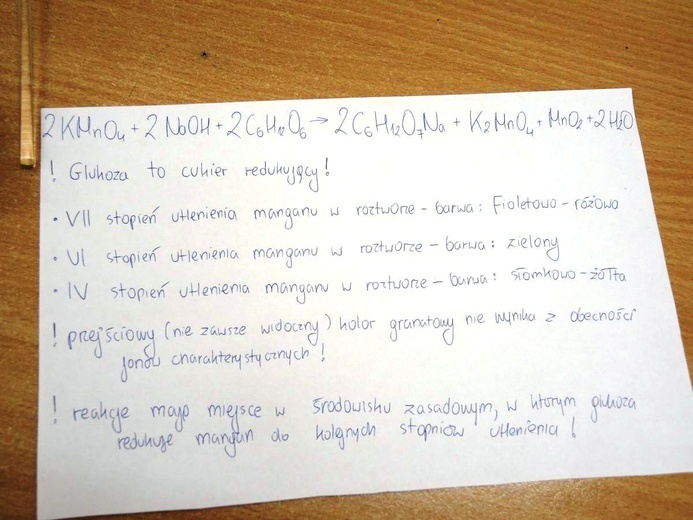 2 KMnO₄ + 2 NaOH + 2 C₆H₁₂O₆ → 2 C₆H₁₂O₇Na + K₂MnO₄ + MnO₂ + 2H₂O
! Glukoza to cukier redukujący!
• VII stopień utlenienia manganu w roztworze - barwa: Fioletowo - różowa
• VI stopień utlenienia manganu w roztworze - barwa: zielony
• IV stopień utlenienia manganu w roztworze - barwa: słomkowo - żółta
! przejściowy (nie zawsze widoczny) kolor granatowy nie wynika z obecności
jonów charakterystycznych!
! reakcje mają miejsce w środowisku zasadowym, w którym glukoza
redukuje mangan do kolejnych stopniów utlenienia!